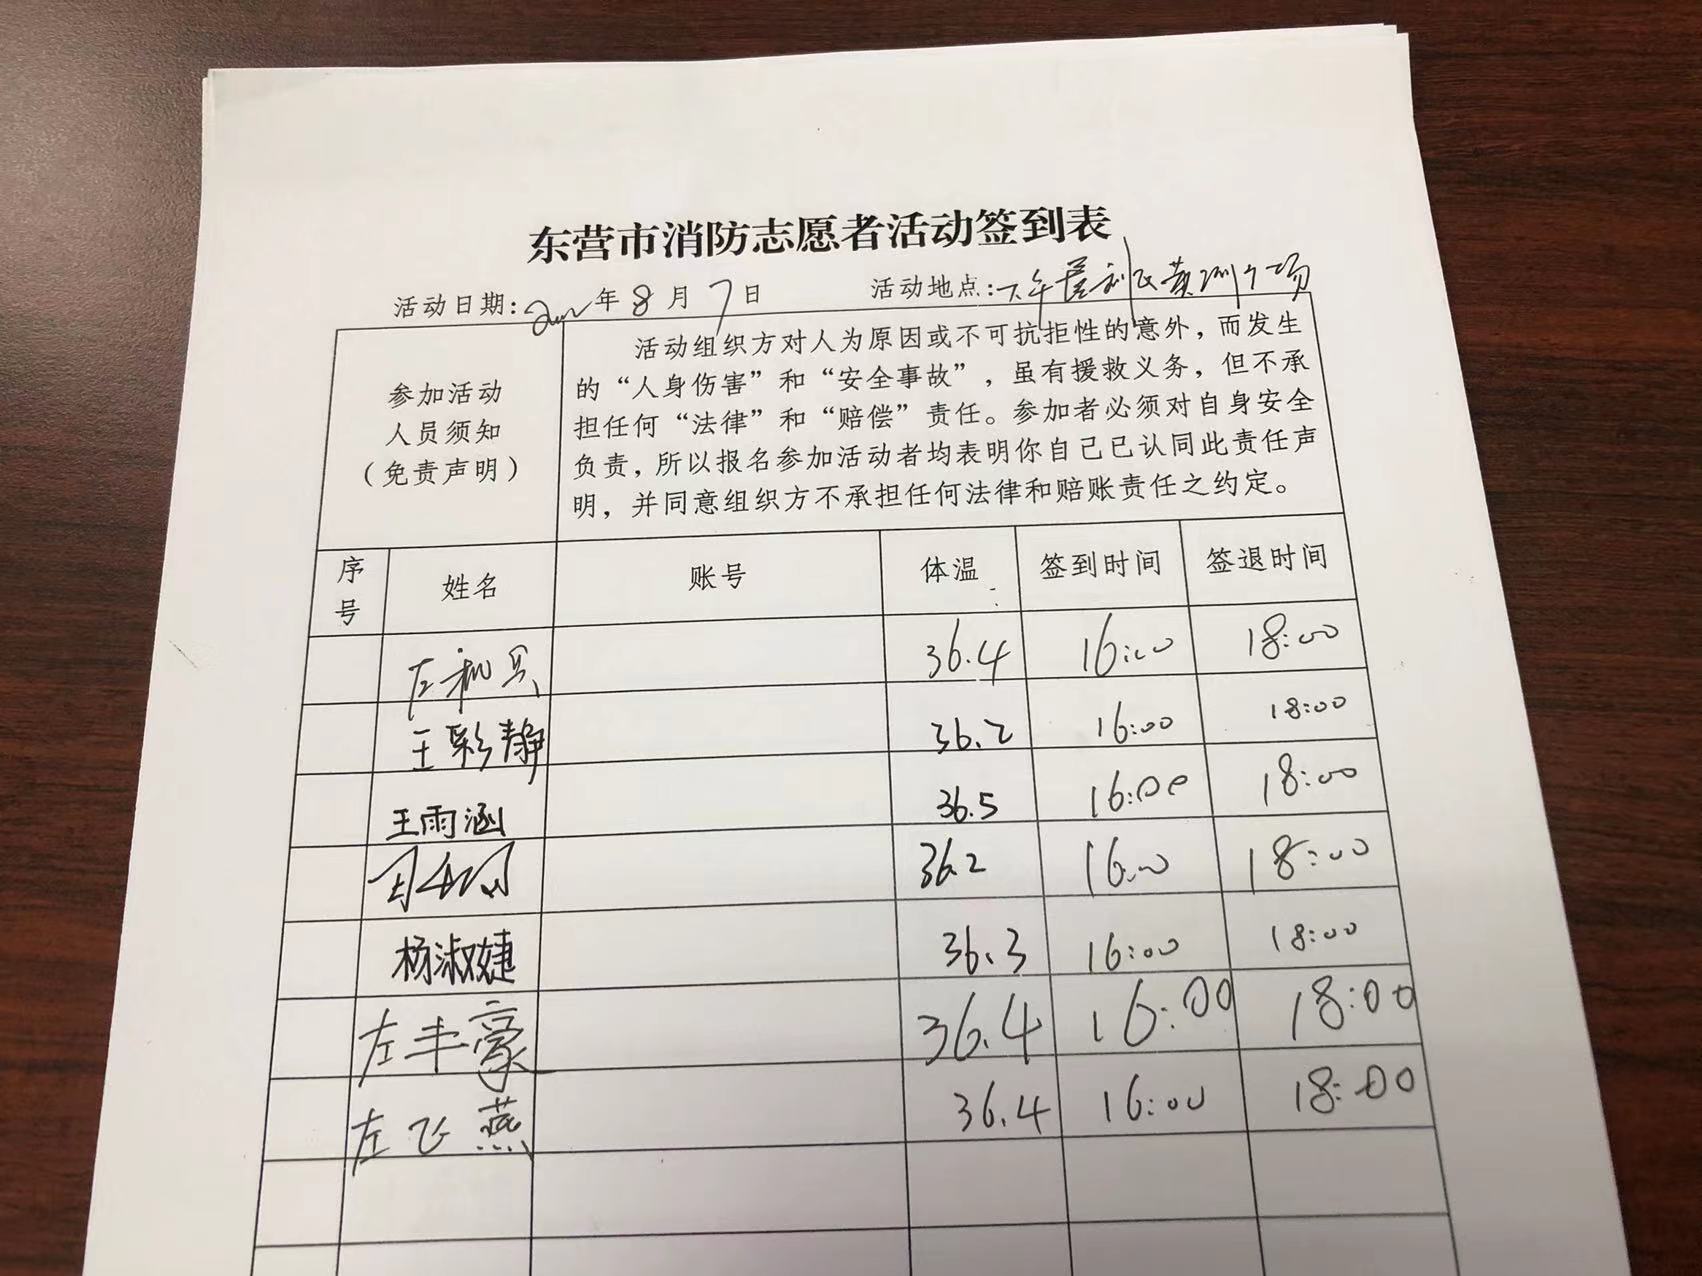 东营市消防志愿者活动签到表
活动日期: 年8月7日 活动地点:
参加活动
人员须知
（免责声明）
活动组织方对人为原因或不可抗拒性的意外，而发生
的“人身伤害”和“安全事故”，虽有援救义务，但不承
担任何“法律”和“赔偿”责任。参加者必须对自身安全
负责，所以报名参加活动者均表明你自己已认同此责任声
明，并同意组织方不承担任何法律和赔账责任之约定。
序号 姓名 账号 体温 签到时间 签退时间
36.4 16:00 18:00
王彩静 36.2 16:00 18:00
王雨涵 36.5 16:00 18:00
36.2 16:00 18:00
杨淑婕 36.3 16:00 18:00
左丰豪 36.4 16:00 18:00
左飞燕 36.4 16:00 18:00